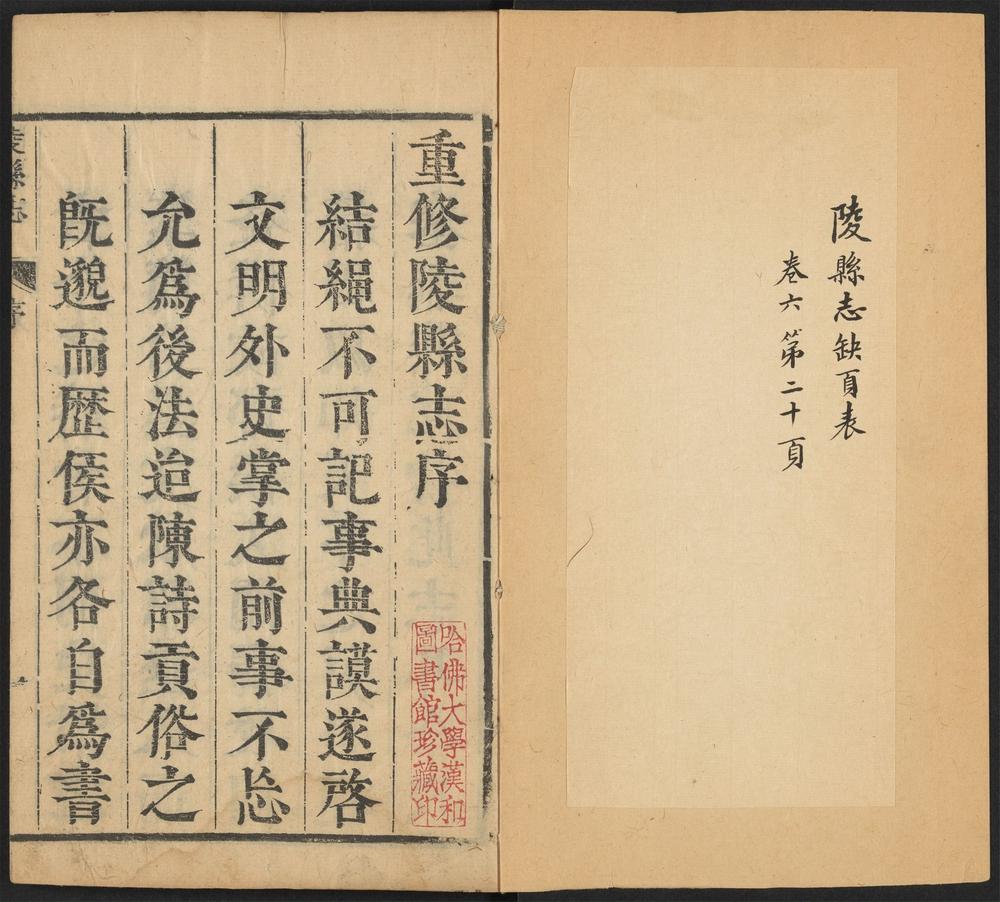 陵縣志缺頁表
卷六第二十頁
重修陵縣志序
結繩不可記事典謨遂啓
文明外史掌之前事不忘
允爲後法迨陳詩貢俗之
旣邈而歴侯亦各自爲書
陵縣志
序
哈佛大學漢和
圖書館珍藏印